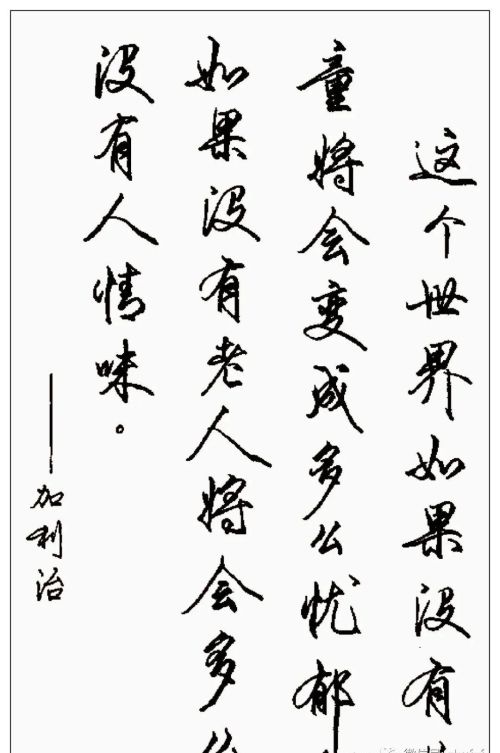 这个世界如果没有
童将会变成多么忧郁
如果没有老人将会多么
没有人情味。
——加利治